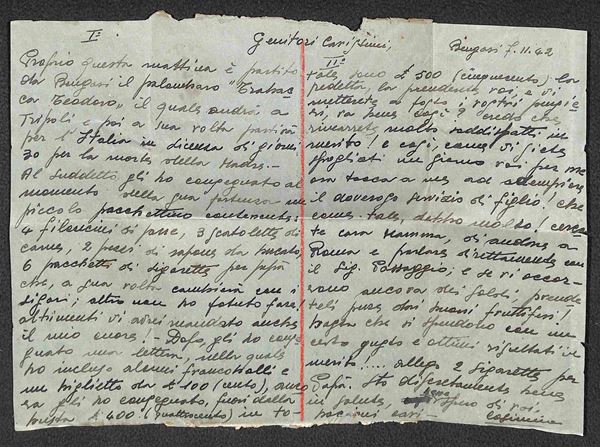 Iº
Genitori Carissimi,
Bengasi 7.11.42
Proprio questa mattina è partito
da Bengasi il palombaro "Trabac
ca Teodoro", il quale andrà a
Tripoli e poi a sua volta partirà
per l'Italia in licenza di giorni
30 per la morte della Madre.-
Al suddetto gli ho consegnato al
momento della sua partenza un
piccolo pacchettino contenente:
4 filoncini di pane, 3 scatolette di
carne, 2 pezzi di sapone da bucato,
6 pacchetti di sigarette per papà
che, a sua volta cambierà con i
sigari; altro non ho potuto fare!
altrimenti vi avrei mandato anche
il mio cuore! - Dopo, gli ho conse
gnato una lettera, nella quale
ho incluso alcuni francobolli e
un biglietto da £ 100 (cento), anco
ra gli ho consegnato, fuori della
busta £ 400 (quattrocento) in to-
IIº
tale sono £ 500 (cinquecento) la
predetta, la prenderete voi, e vi
metterete a posto i vostri
va bene così? credo che
rimarrete molto soddisfatti in
merito! e così, come vi siete
spogliati un giorno voi per me
ora tocca a me ad adempiere
il doveroso servizio di figlio! che
come tale, debbo molto! cerca
te cara Mamma, di andare a
Roma e parlare direttamente con
il Sig. e se vi occor-
rono ancora dei soldi, prende
teli pure dai buoni fruttiferi!
basta che si spendono con un
certo gusto e ottimi risultati in
merito.... allego 2 sigarette per
Papà. Sto discretamente bene
in salute, spero di voi,
bacioni cari -